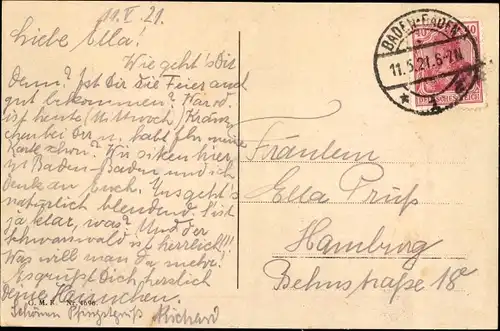 11. V. 21.
Liebe Ella!
Wie geht's Dir
denn? Ist Dir die Feier auch
gut bekommen?
ist heute (Mittwoch) Kränz
chen bei Dir u. habt Ihr meine
Karte schon? Wir sitzen hier
in Baden-Baden und ich
denke an Euch. Uns geht's
natürlich blendend. Ist
ja klar, was? Und der
Schwarzwald ist herrlich!!!
Was will man da mehr!
Es grüßt Dich herzlich
Deine Hannchen.
G. M. K.
Schönen Pfingstgruß Richard
BADEN-BADEN
11.5.21.6-7N.
10
Fräulein
Ella Pruß
Hamburg
Behnstraße 18